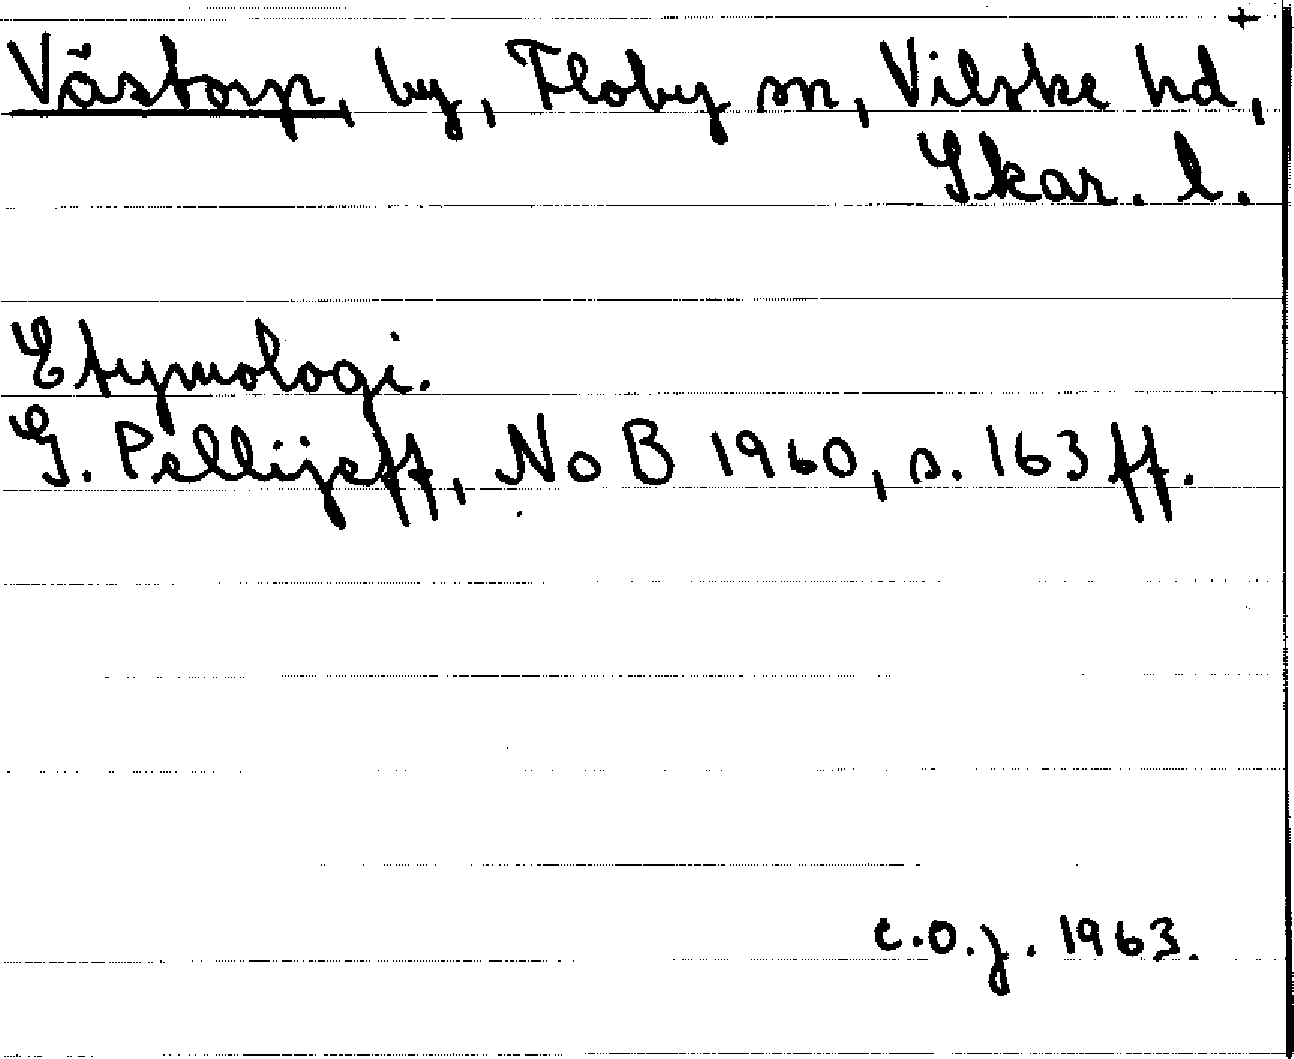 +
Västorp, by, Floby sn, Vilske hd,
Skar. l.
Etymologi.
G. Pellijeff, NoB 1960, s. 163 ff.
C.O.J. 1963.